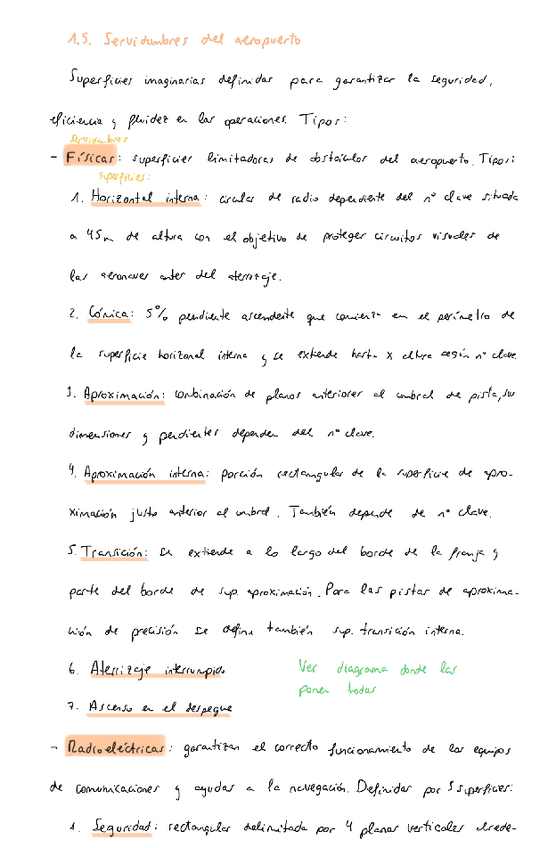 1.5. Servidumbres del aeropuerto
Superficies imaginarias definidas para garantizar la seguridad,
eficiencia y fluidez en las operaciones. Tipos:
Servidumbres
- Físicas: superficies limitadoras de obstáculos del aeropuerto. Tipos:
superficies:
1. Horizontal interna: circular de radio dependiente del nº clave situada
a 45m de altura con el objetivo de proteger circuitos visuales de
las aeronaves antes del aterrizaje.
2. Cónica: 5% pendiente ascendente que comienza en el perímetro de
la superficie horizonal interna y se extiende hasta x altura según nº clave.
3. Aproximación: combinación de planos anteriores al umbral de pista, sus
dimensiones y pendientes dependen del nº clave.
4. Aproximación interna: porción rectangular de la superficie de apro-
ximación justo anterior al umbral. También depende de nº clave.
5. Transición: se extiende a lo largo del borde de la franja y
parte del borde de sup. aproximación. Para las pistas de aproxima-
ción de precisión se define también sup. transición interna.
6. Aterrizaje interrumpido
Ver diagrama donde las
ponen todas
7. Ascenso en el despegue
- Radioeléctricas: garantizan el correcto funcionamiento de los equipos
de comunicaciones y ayudas a la navegación. Definidas por 3 superficies:
1. Seguridad: rectangular delimitada por 4 planos verticales alrede-